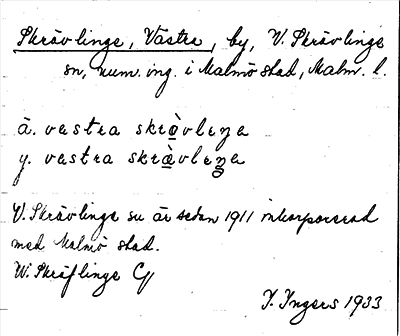 Skrävlinge, Västra, by, V. Skrävlinge
sn, num. ing. i Malmö stad, Malm. l.
ä. vastra skrävleŋa
y. vastra skrävleŋa
V. Skrävlinge sn är sedan 1911 inkorporerad
med Malmö stad.
W. Skräflinge
I. Ingers 1933